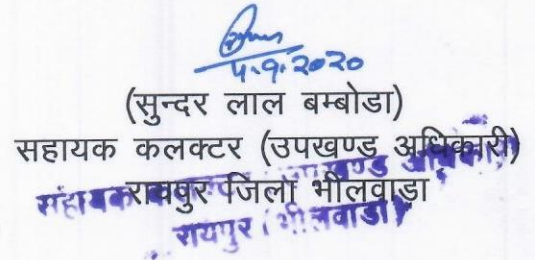 4.9.2020
(सुन्दर लाल बम्बोडा)
सहायक कलक्टर (उपखण्ड अधिकारी)
रायपुर जिला भीलवाडा
सहायक उपखण्ड अधिकारी
रायपुर (भीलवाडा)